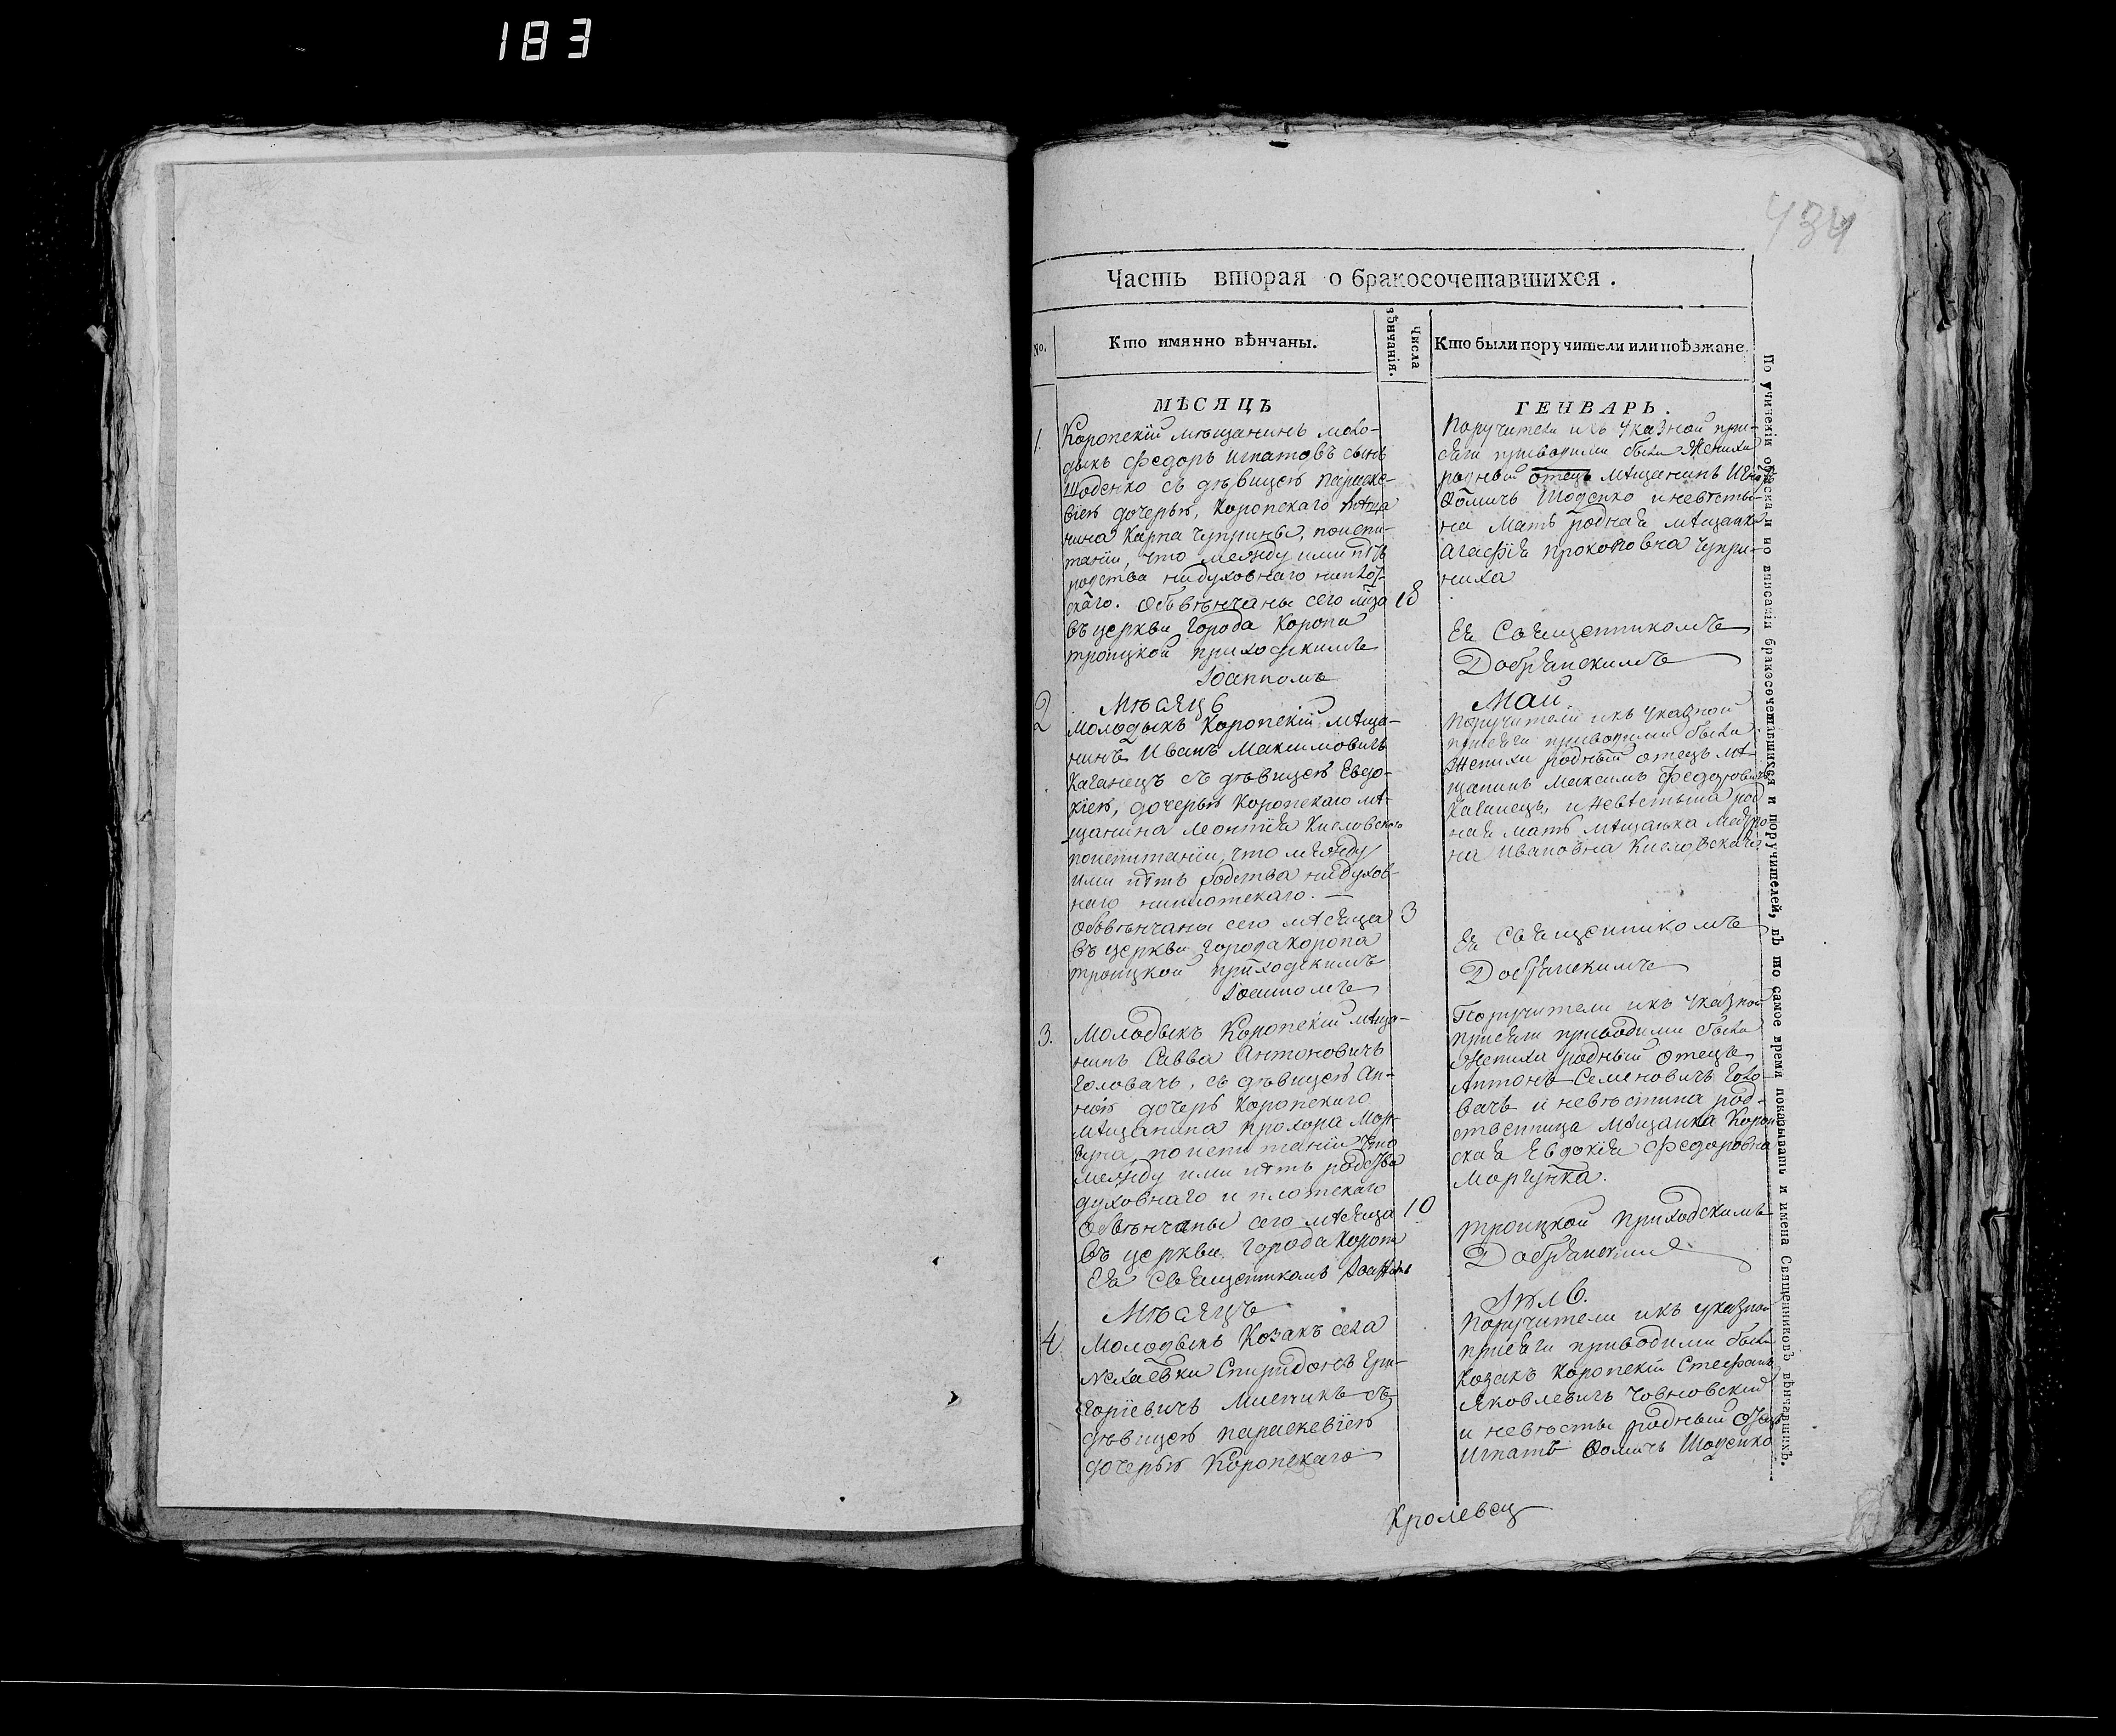 183
434
Часть вторая о бракосочетавшихся.
No.
Кто имянно вѣнчаны.
Числа вѣнчанія.
Кто были поручители или поѣзжане.
МѢСЯЦЪ
1.
Коропскїй мѣщанинъ моло-
дыкъ Федоръ Игнатовъ сынъ
Шоденко съ дѣвицею Параске-
вїею дочерью, Коропскаго мѣща
нина Карпа Чуприны, поиспи-
танїи, что между ими нѣтъ
родства нидуховнаго ниплот-
скаго. Обвѣнчаны сего мца
18
въ церкви города Коропа
троицкой приходскимъ
Іоанномъ
ГЕНВАРЬ.
Поручители ихъ указной при-
сяги приводими были Жениха
родный отецъ мѣщанинъ Игнатъ
Ѳомичъ Шоденко и невѣсты-
на мать родная мѣщанка
Агафїя Прокоповна Чупри-
ниха
Ея Священникомъ
Добрянскимъ
2
Мѣсяцъ
Молодыкъ Коропскїй мѣща-
нинъ Иванъ Максимовичъ
Каганецъ съ дѣвицею Евдо-
кїею, дочерью Коропскаго мѣ-
щанина Леонтїя Кисловского
поиспитанїи, что между
ими нѣтъ родства нидухов-
наго ниплотскаго. —
Обвѣнчаны сего мѣсяца
3
въ церкви города Коропа
троицкой приходскимъ
Іоанномъ
Маи
Поручители ихъ указной
присяги приводими были
Жениха родный отецъ мѣ-
щанинъ Максимъ Федоровичъ
Каганецъ, и невѣстына род
ная мать мѣщанка
на Ивановна Кисловская
Ея Священникомъ
Добрянскимъ
3.
Молодыкъ Коропскїй мѣща-
нинъ Савва Антоновичъ
Головачъ, съ дѣвицею Ан-
ною дочерь Коропскаго
мѣщанина Прохора Мор-
гуна, поиспитанїи что
между ими нѣтъ родства
духовнаго и плотскаго
Обвѣнчаны сего мѣсяца
10
въ церкви города Коропа
Ея Священникомъ Іоанномъ
Поручители ихъ указной
присяги приводими были
Жениха родный отецъ
Антонъ Семеновичъ Голо-
вачъ и невѣстина род-
ственница мѣщанка Короп
ская Евдокїя Федоровна
Моргунка.
троицкой приходскимъ
Добрянским
Мѣсяцъ
4.
Молодыкъ Козакъ села
Нехаевки Спиридонъ Гри-
горїевичъ съ
дѣвицею Параскевїею
дочерью Коропскаго
Іюль.
Поручители ихъ указной
присяги приводими были
козакъ Коропскїй Стефанъ
Яковлевичъ Човновский
и невѣсты родный отецъ
Игнатъ Ѳомичъ Шоденко
Кролевец
По учиненїи обыска и по вписанїи бракосочетавшихся и поручителей, въ то самое время показывать и имена Священниковъ вѣнчавшихъ.